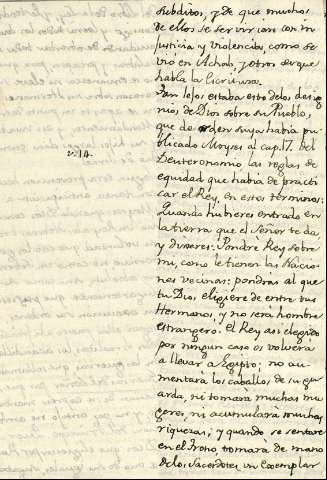 subditos, y de que muchos
de ellos se servirian con in
justicia y violencias, como se
vio en Achab, y otros de que
habla la Escritura.
Tan lejos estaba esto de los desig
nios de Dios sobre su Pueblo,
que de orden suya habia pu
blicado Moyses al cap. 17. del
Deuteronomio las reglas de
v. 14.
equidad que habia de practi
car el Rey, en estos terminos:
Quando hubieres entrado en
la tierra que el Señor te da,
y dixeres: Pondre Rey sobre
mi, como le tienen las Nacio
nes vecinas: pondras al que
tu Dios eligiere de entre tus
Hermanos, y no será hombre
estrangero. El Rey asi elegido
por ningun caso os volverá
a llevar a Egipto; no au
mentará los caballos de su gu
arda, ni tomará muchas mu
geres, ni acumulará muchas
riquezas; y quando se sentare
en el Trono, tomará de mano
de los Sacerdotes un Exemplar